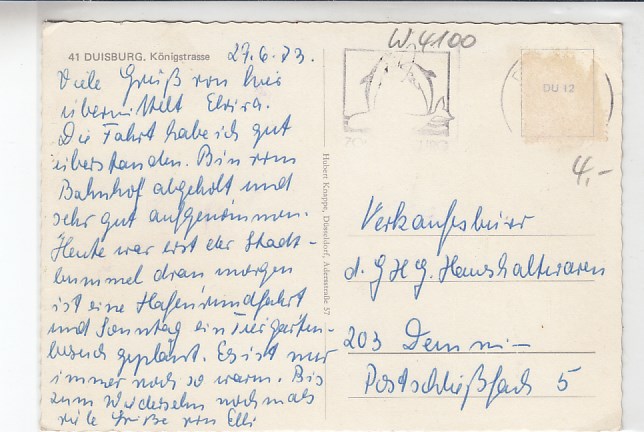 41 DUISBURG, Königstrasse
27.6.73.
Viele Grüß von hier
übermittelt Elvira.
Die Fahrt habe ich gut
überstanden. Bin vom
Bahnhof abgeholt und
sehr gut aufgenommen.
Heute war erst der Stadt-
bummel dran morgen
ist eine Hafenrundfahrt
und Sonntag ein Tiergarten-
besuch geplant. Es ist nur
immer noch so warm. Bis
zum Wiedersehn nochmals
viele Grüße von Elli
Hubert Knappe, Düsseldorf, Adersstraße 57
W 4100
DU 12
4,-
Verkaufsbüro
d. GHG. Haushaltwaren
203 Demmin
Postschließfach 5